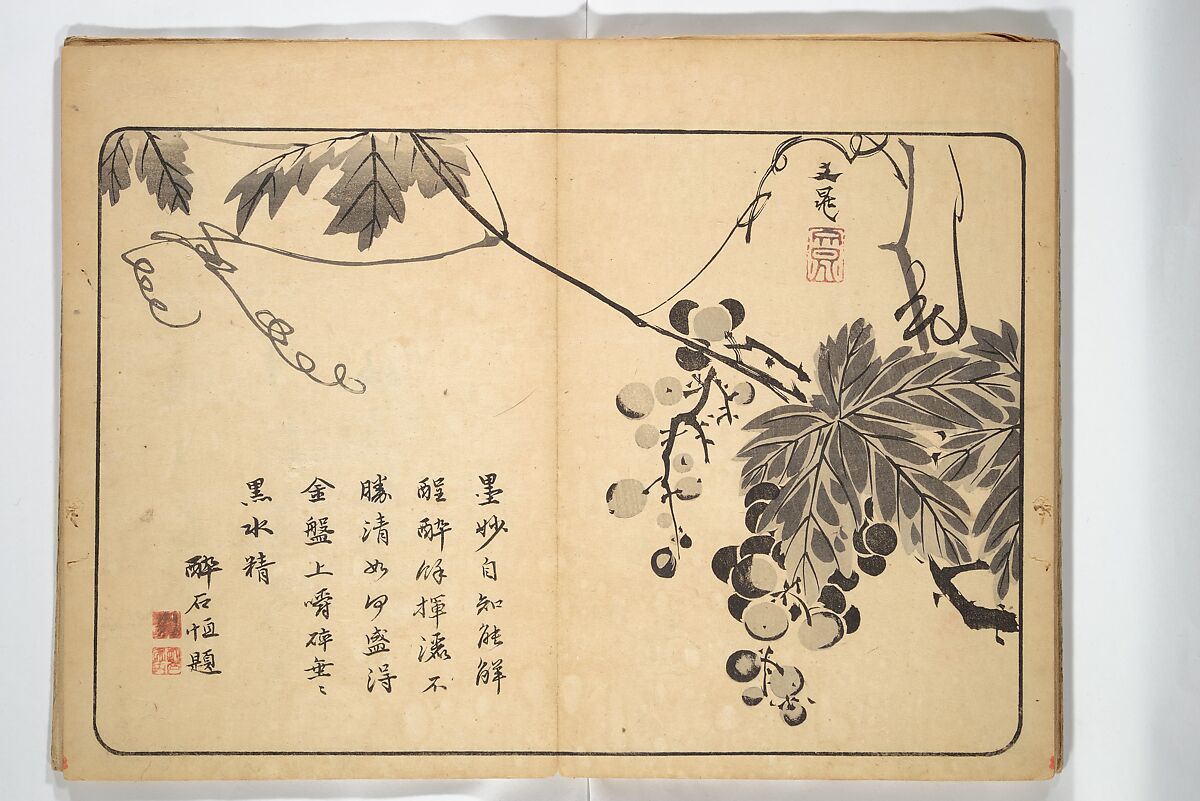 墨妙自知能解
酲醉餘揮灑不
勝清如何盛得
金盤上嚼碎垂〻
黒水精
醉石恒題